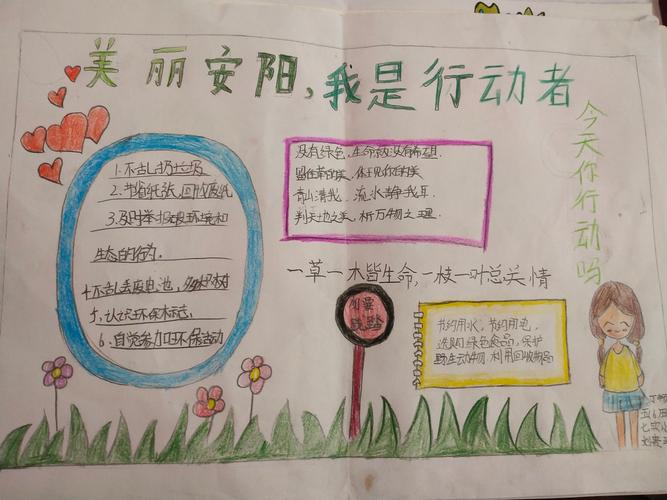 美丽安阳，我是行动者
今天你行动吗
1.不乱扔垃圾
2.节省纸张，回收废纸
3.及时举报破坏环境和
生态的行为。
4.不乱丢废电池，多种树
5、认识环保标志，
6、自觉参加环保活动
没有绿色，生命就没有希望
留住草的美
青山清我，流水静我耳
判天地之美，析万物之理
一草一木皆生命，一枝一叶总关情
践踏
节约用水，节约用电，
选购绿色食品，保护
野生动物 利用回收物品